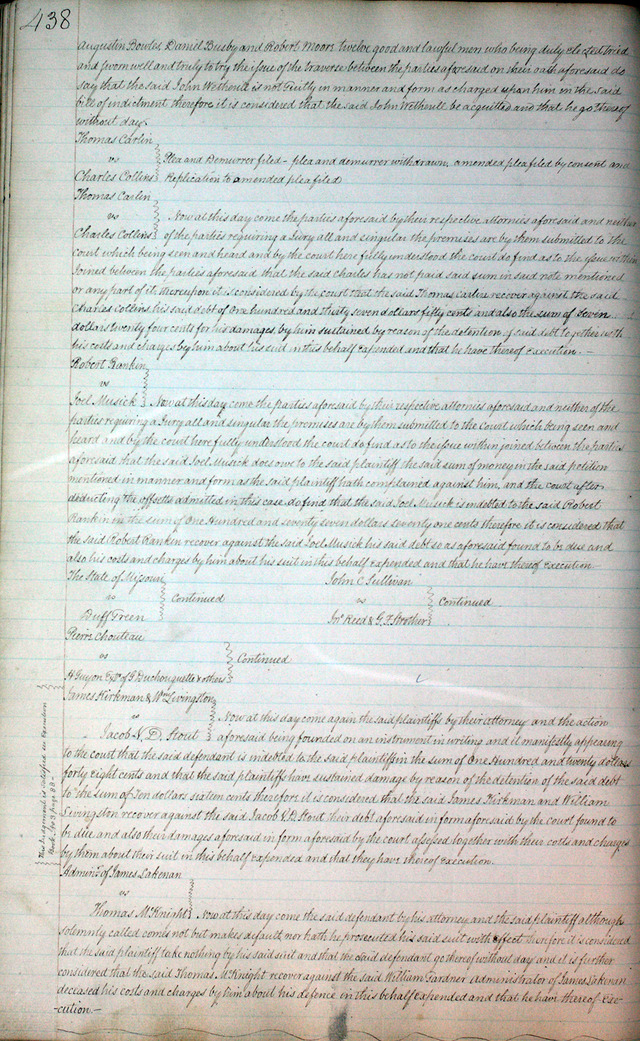 438
Augustin Bowles Daniel Busby and Robert Moors twelve good and lawful men who being duly elected tried
and sworn well and truly to try the issue of the traverse between the parties aforesaid on their oath aforesaid do
say that the said John Wethoult is not Guilty in manner and form as charged upon him in the said
bill of indictment therefore it is considered that the said John Wethoult be acquitted and that he go thereof
without day.
Thomas Carlin
vs
Plea and Demurrer filed - plea and demurrer withdrawn amended plea filed by consent and
Charles Collins Replication to amended plea filed
Thomas Carlin
vs
Now at this day come the parties aforesaid by their respective attornies aforesaid and neither
Charles Collins of the parties requiring a Jury all and singular the premises are by them submitted to the
court which being seen and heard and by the court here fully understood the court do find as to the issue within
Joined between the parties aforesaid that the said Charles has not paid said sum in said note mentioned
or any part of it whereupon it is considered by the court that the said Thomas Carlin recover against the said
Charles Collins his said debt of One hundred and thirty seven dollars fifty cents and also the sum of Seven
dollars twenty four cents for his damages by him sustained by reason of the detention of said debt together with
his costs and charges by him about his suit in this behalf expended and that he have thereof execution.-
Robert Rankin
vs
Joel Musick Now at this day come the parties aforesaid by their respective attornies aforesaid and neither of the
parties requiring a Jury all and singular the premises are by them submitted to the Court which being seen and
heard and by the court here fully understood the court do find as to the issue within joined between the parties
aforesaid that the said Joel Musick does owe to the said plaintiff the said sum of money in the said petition
mentioned in manner and form as the said plaintiff hath complained against him, and the court after
deducting the offsetts admitted in this case do find that the said Joel Musick is indebted to the said Robert
Rankin in the sum of One Hundred and seventy seven dollars seventy one cents therefore it is considered that
the said Robert Ranken recover against the said Joel Musick his said debt so as aforesaid found to be due and
also his costs and charges by him about his suit in this behalf expended and that he have thereof execution
The State of Missouri
vs Continued
Duff Green
John C Sullivan
vs Continued
Jno Reed & G. F. Strother
Pierre Chouteau
vs
Continued
H Guyon Exr of B Duchouquette & others
James Kirkman & Wm Livingston
vs Now at this day come again the said plaintiffs by their attorney and the action
Jacob V. D. Stout aforesaid being founded on an instrument in writing and it manifestly appearing
to the court that the said defendant is indebted to the said plaintiff in the sum of One Hundred and twenty dollars
forty eight cents and that the said plaintiffs have sustained damage by reason of the detention of the said debt
to the sum of Ten dollars sixteen cents therefore it is considered that the said James Kirkman and William
Livingston recover against the said Jacob V D Stout their debt aforesaid in form aforesaid by the court found to
be due and also their damages aforesaid in form aforesaid by the court assessed together with their costs and charges
by them about their suit in this behalf expended and that they have thereof execution.
This Judgement is satisfied see Execution
Book No 3 page 88-
Adminr of James Lakenan
vs
Thomas McKnight Now at this day come the said defendant by his attorney and the said plaintiff although
solemnly called comes not but makes default, nor hath he prosecuted his said suit with effect therefore it is considered
that the said plaintiff take nothing by his said suit and that the said defendant go thereof without day and it is further
considered that the said Thomas McKnight recover against the said William Gardner Administrator of James Lakenan
deceased his costs and charges by him about his defence in this behalf expended and that he have thereof exe-
-cution.-